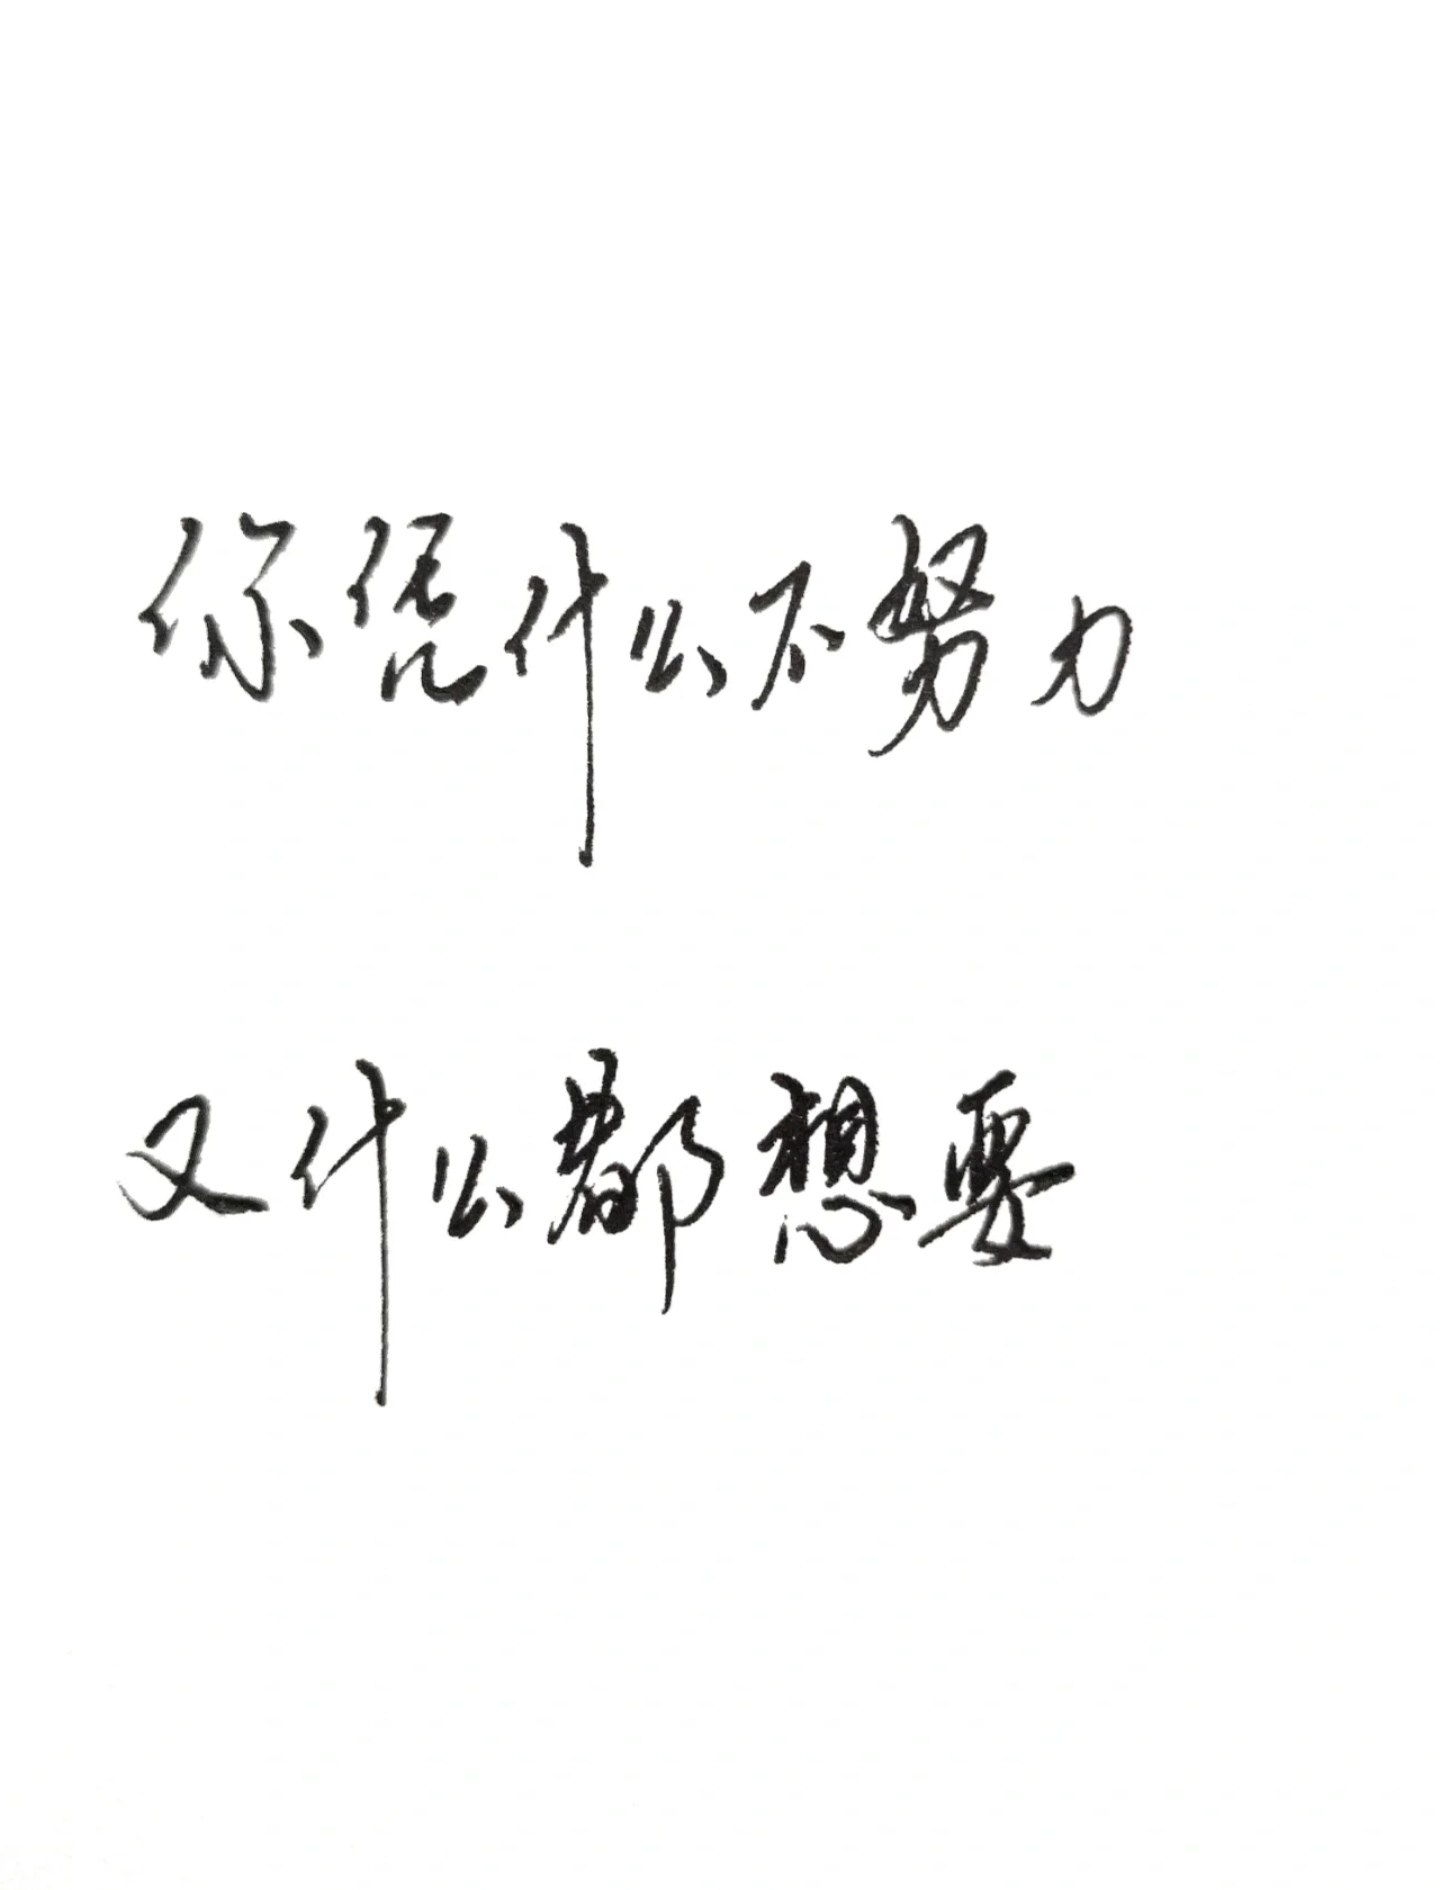 你凭什么不努力
又什么都想要